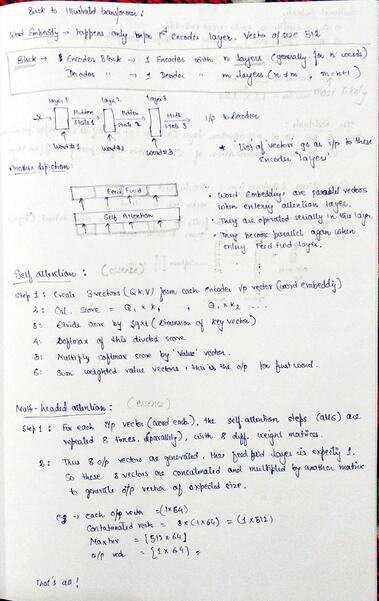 Back to Illustrated transformer:
Word Embeddg → happens only before 1st encoder layer. Vector of size 512
Block → 1 Encoder Block → 1 Encoder with n layers (generally for n' words)
Decoder " → 1 Decoder " m layers (n≠m, m=n+1)
layer 1 layer 2 layer 3
x Hidden State 1 Hidden state 2 Hidde State 3 i/p to Decoder
Word#1 Word#2 Word#3
* 'list of vectors go as i/p to these Encoder layer'
Another depiction:
Feed Fwd
Self Attention
• Word Embeddings are parallel vectors
when entering attention layer.
• They are operated serially in this layer.
• They become parallel again when
entry feed fwd layer.
Self attention: (essence)
Step 1: Create 3 vectors (Q,K,V) from each encoder i/p vector (word embeddg)
2: Cal. score = Q1 x K1 , Q1 x K2 ....
3: Divide score by sqrt (Dimension of key vector)
4: Softmax of this divided score
5: Multiply softmax score by 'Value' vector.
6: Sum weighted value vectors, this is the o/p for first word.
Multi-headed attention: (essence)
Step 1: For each i/p vector (word emb), the self attention steps (all 6) are
repeated 8 times, (parallely), with 8 diff. weight matrices.
2: Thus 8 o/p vectors are generated. But feed fwd layer is expecting 1.
So these 8 vectors are concatenated and multiplied by another matrix
to generate o/p vector of expected size.
eg → each o/p vector = (1x64)
Concatenated vector = 8x(1x64) = (1x512)
Matrix = [512x64]
o/p vect = [1x64]
That's all!